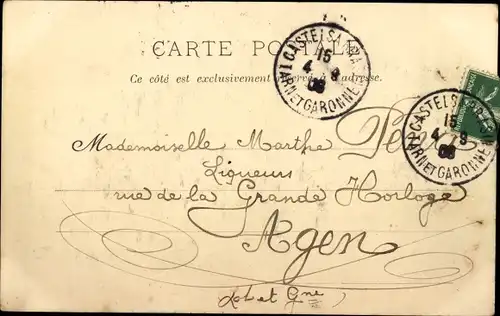 CARTE POSTALE
Ce côté est exclusivement réservé à l'adresse.
CASTELSARRASIN
15
4 9
08
TARN ET GARONNE
CASTELSARRASIN
15
4 9
08
TARN ET GARONNE
Mademoiselle Marthe
Liqueurs
rue de la Grande Horloge
Agen
Lot et Gne